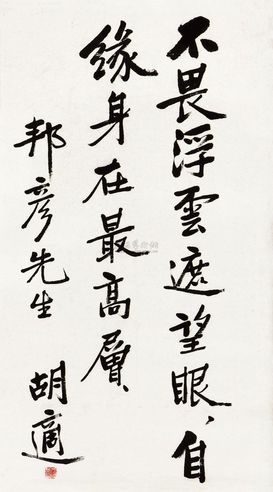 不畏浮雲遮望眼、自
緣身在最高層、
邦彥先生　胡適